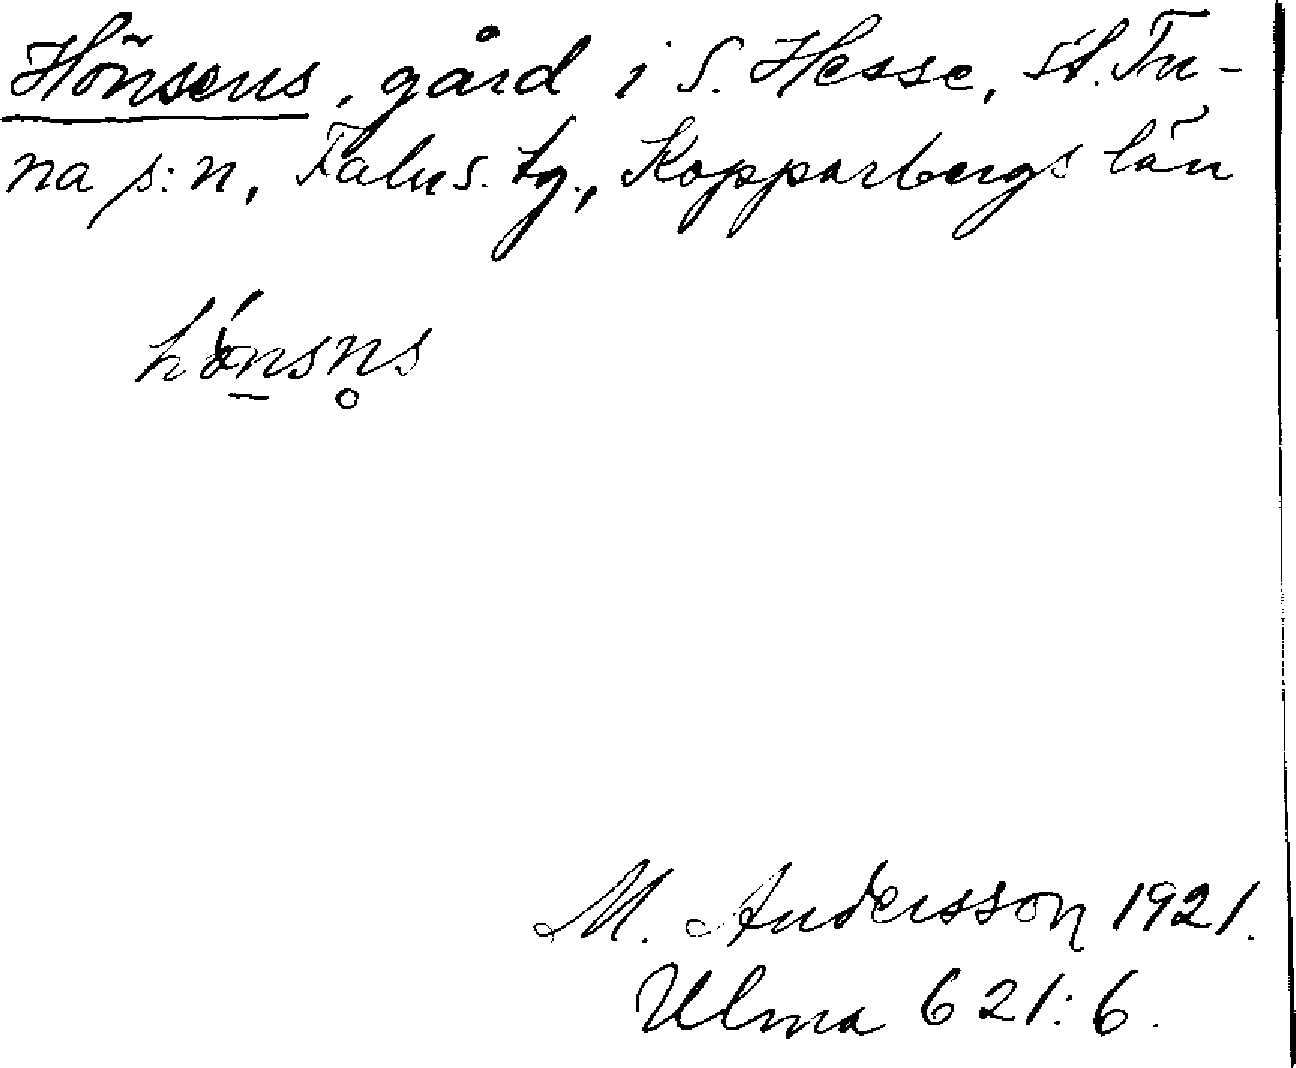 Hönsens, gård i S. Hesse, St. Tu-
na s:n, Falu s. tg., Kopparbergs län
hö́n̲sn̥s
M. Andersson 1921.
Ulma 621:6.